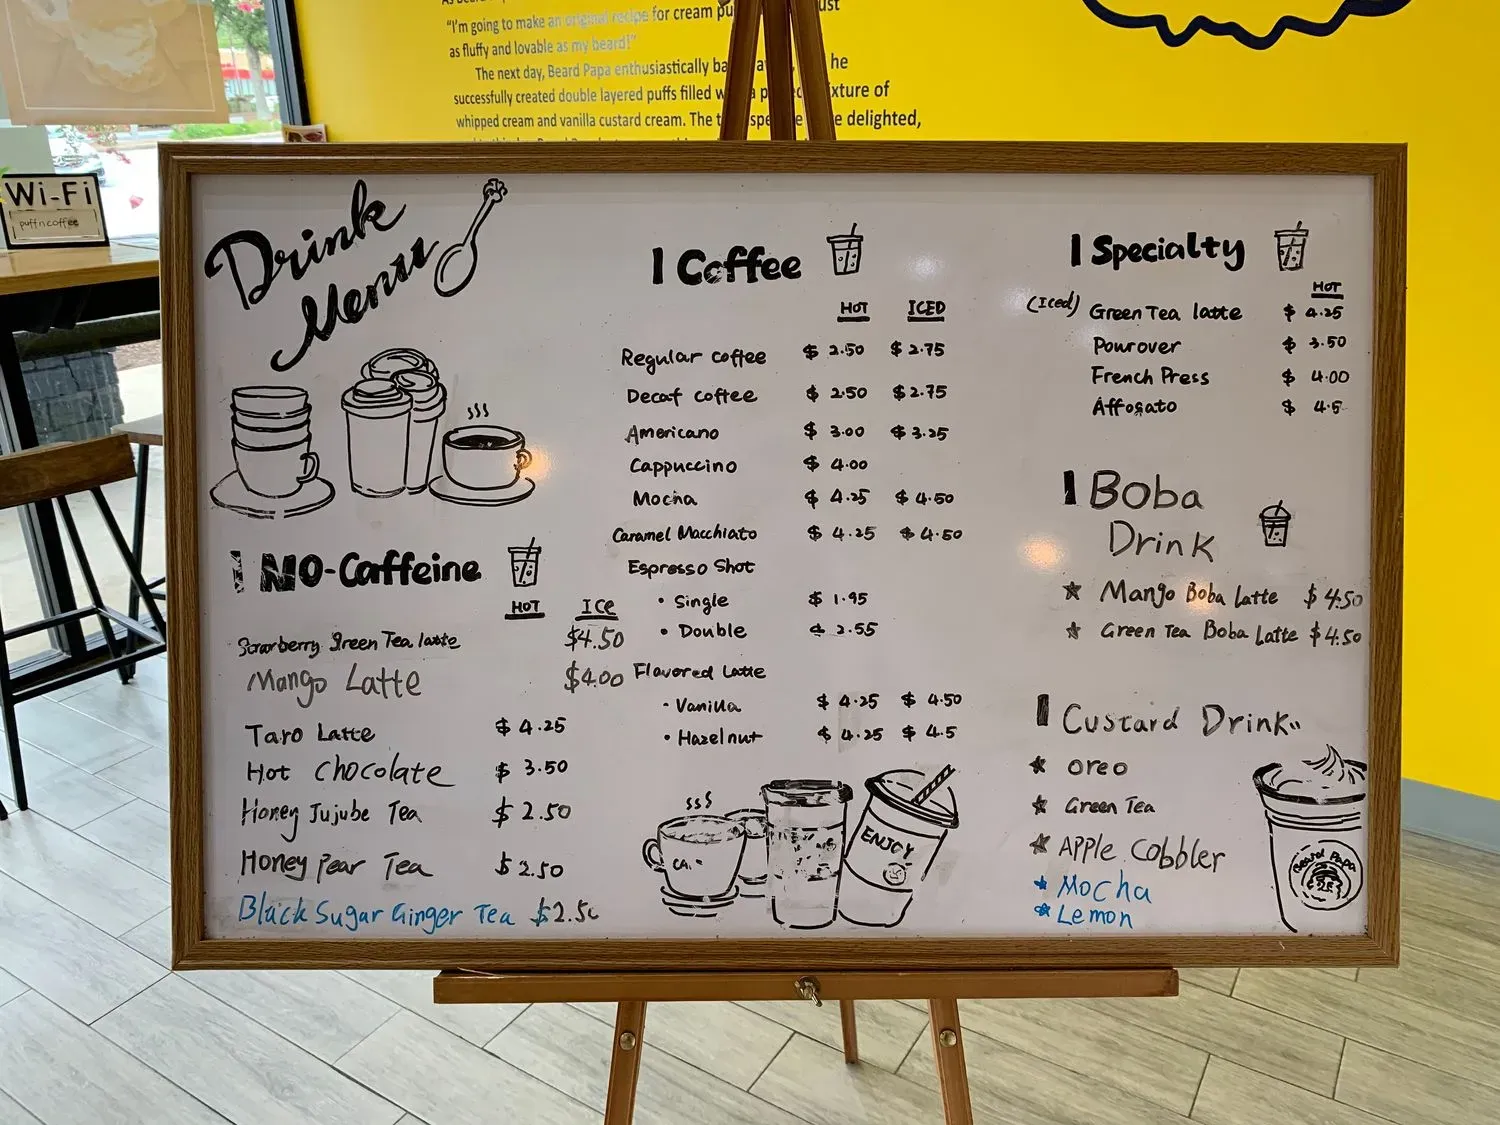 "I'm going to make an original recipe for cream
as fluffy and lovable as my beard!"
The next day, Beard Papa enthusiastically he
successfully created double layered puffs filled of
whipped cream and vanilla custard cream. The delighted,
Wi-Fi
puffncoffee
Drink
Menu
NO-Caffeine
HOT ICE
Strawberry Green Tea latte $4.50
Mango Latte $4.00
Taro Latte $4.25
Hot Chocolate $3.50
Honey Jujube Tea $2.50
Honey Pear Tea $2.50
Black Sugar Ginger Tea
Coffee
HOT ICED
Regular coffee $2.50 $2.75
Decaf coffee $2.50 $2.75
Americano $3.00 $3.25
Cappuccino $4.00
Mocha $4.25 $4.50
Caramel Macchiato $4.25 $4.50
Espresso Shot
• Single $1.95
• Double $2.55
Flavored Latte
• Vanilla $4.25 $4.50
• Hazelnut $4.25 $4.5
ENJOY
Specialty
HOT
(Iced) Green Tea latte $4.25
Pourover $3.50
French Press $4.00
Affogato $4.5
Boba
Drink
★ Mango Boba Latte $4.50
★ Green Tea Boba Latte $4.50
Custard Drink
★ Oreo
★ Green Tea
★ Apple Cobbler
★ Mocha
★ Lemon
Beard Papa